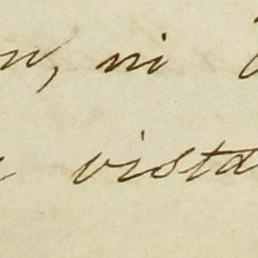 n, ni
vista